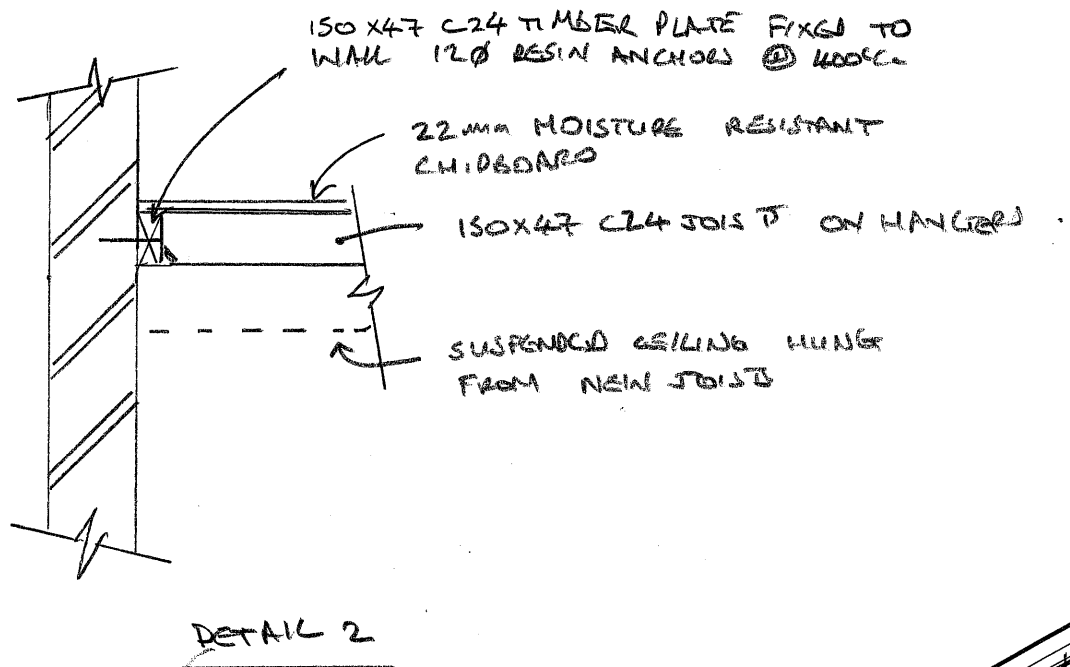 150 X47 C24 TIMBER PLATE FIXED TO
WALL 12Ø RESIN ANCHORS @ 400%c.
22mm MOISTURE RESISTANT
CHIPBOARD
150X47 C24 JOISTS ON HANGERS.
SUSPENDED CEILING HUNG
FROM NEW JOISTS
DETAIL 2